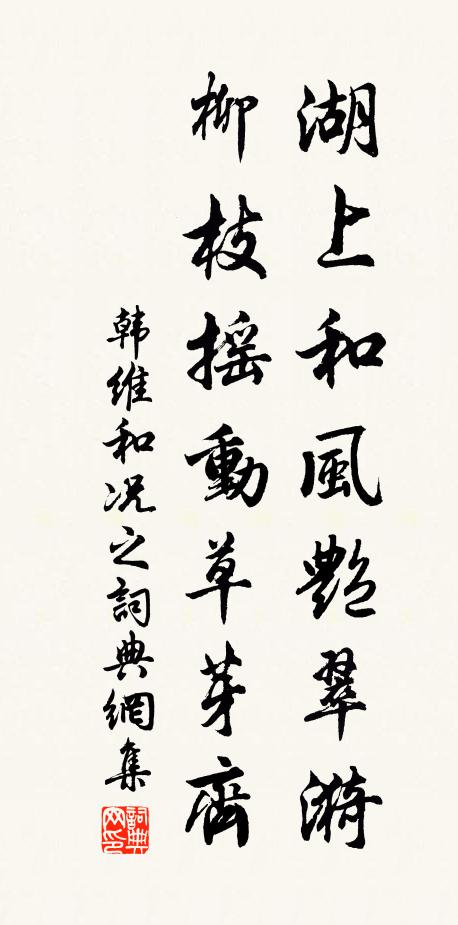 湖上和風艶翠漪
柳枝摇動草芽齊
韩維和况之詞典網集
詞典网印